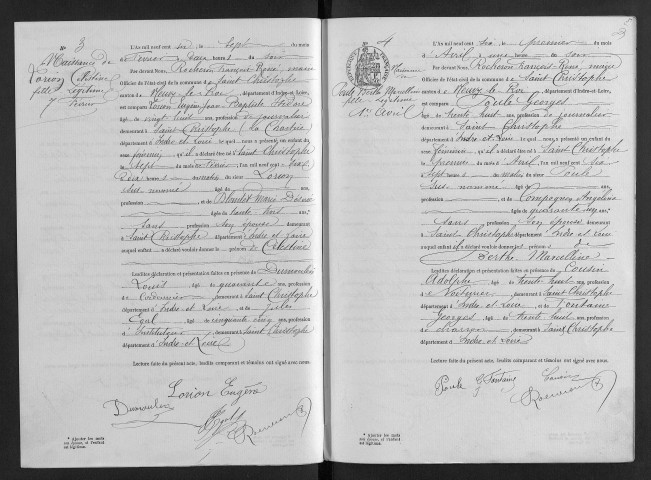 N° 3
Naissance de
Lorion Célestine
fille
légitime
7 Février
L'An mil neuf cent six, le sept du mois
de Février à deux heures du soir
Par devant Nous, Rocheron François René, maire
Officier de l'état civil de la commune de Saint Christophe
canton de Neuvy le Roi, département d'Indre-et-Loire,
est comparu Lorion Eugène Jean Baptiste Isidore
âgé de vingt huit ans, profession de journalier
demeurant à Saint Christophe, la
département d'Indre et Loire, lequel nous a présenté un enfant du sexe
féminin, qu'il a déclaré être né à Saint Christophe
le sept du mois de Février, l'an mil neuf cent six, à
heures du Lorion
sus nommé âgé de
profession et de Blondet Marie Désirée
âgée de trente ans
sans profession son épouse demeurant
à Saint Christophe département Indre et Loire
auquel enfant il a déclaré vouloir donner le prénom de Célestine
Lesdites déclaration et présentation faites en présence de Dumoulin
Louis âgé de quarante ans, profession
de Cordonnier, demeurant à Saint Christophe
département d'Indre et Loire et de Jules
âgé de cinquante cinq ans, profession
d'Instituteur, demeurant Saint Christophe
département d'Indre et Loire
Lecture faite du présent acte, lesdits comparant et témoins ont signé avec nous.
Lorion Eugène
Dumoulin
Rocheron
* Ajouter les mots
son épouse, si l'enfant
est légitime.
N° 4
Naissance
de
Poule Berthe Marcelline
fille légitime
1er Avril
L'An mil neuf cent six, le premier du mois
d'Avril à une heure du soir
Par devant Nous, Rocheron François René, maire
Officier de l'état civil de la commune de Saint Christophe
canton de Neuvy le Roi, département d'Indre-et-Loire,
est comparu Poule Georges
âgé de trente huit ans, profession de journalier
demeurant à Saint Christophe
département d'Indre et Loire, lequel nous a présenté un enfant du sexe
féminin, qu'il a déclaré être né à Saint Christophe
le premier du mois d'Avril, l'an mil neuf cent six
à sept heures du matin, de Poule
sus nommé âgé de
profession et de Compagney Angeline
âgée de quarante
sans profession son épouse demeurant
à Saint Christophe département Indre et Loire
auquel enfant il a déclaré vouloir donner les prénoms de
Berthe Marcelline
Lesdites déclaration et présentation faites en présence de Cousin
Adolphe âgé de trente huit ans, profession
de Voiturier, demeurant à Saint Christophe
département d'Indre et Loire et de Fontaine
Georges âgé de trente huit ans, profession
de charron, demeurant à Saint Christophe
département d'Indre et Loire
Lecture faite du présent acte, lesdits comparant et témoins ont signé avec nous.
Poule G Fontaine Cousin
Rocheron
* Ajouter les mots
son épouse, si l'enfant
est légitime.